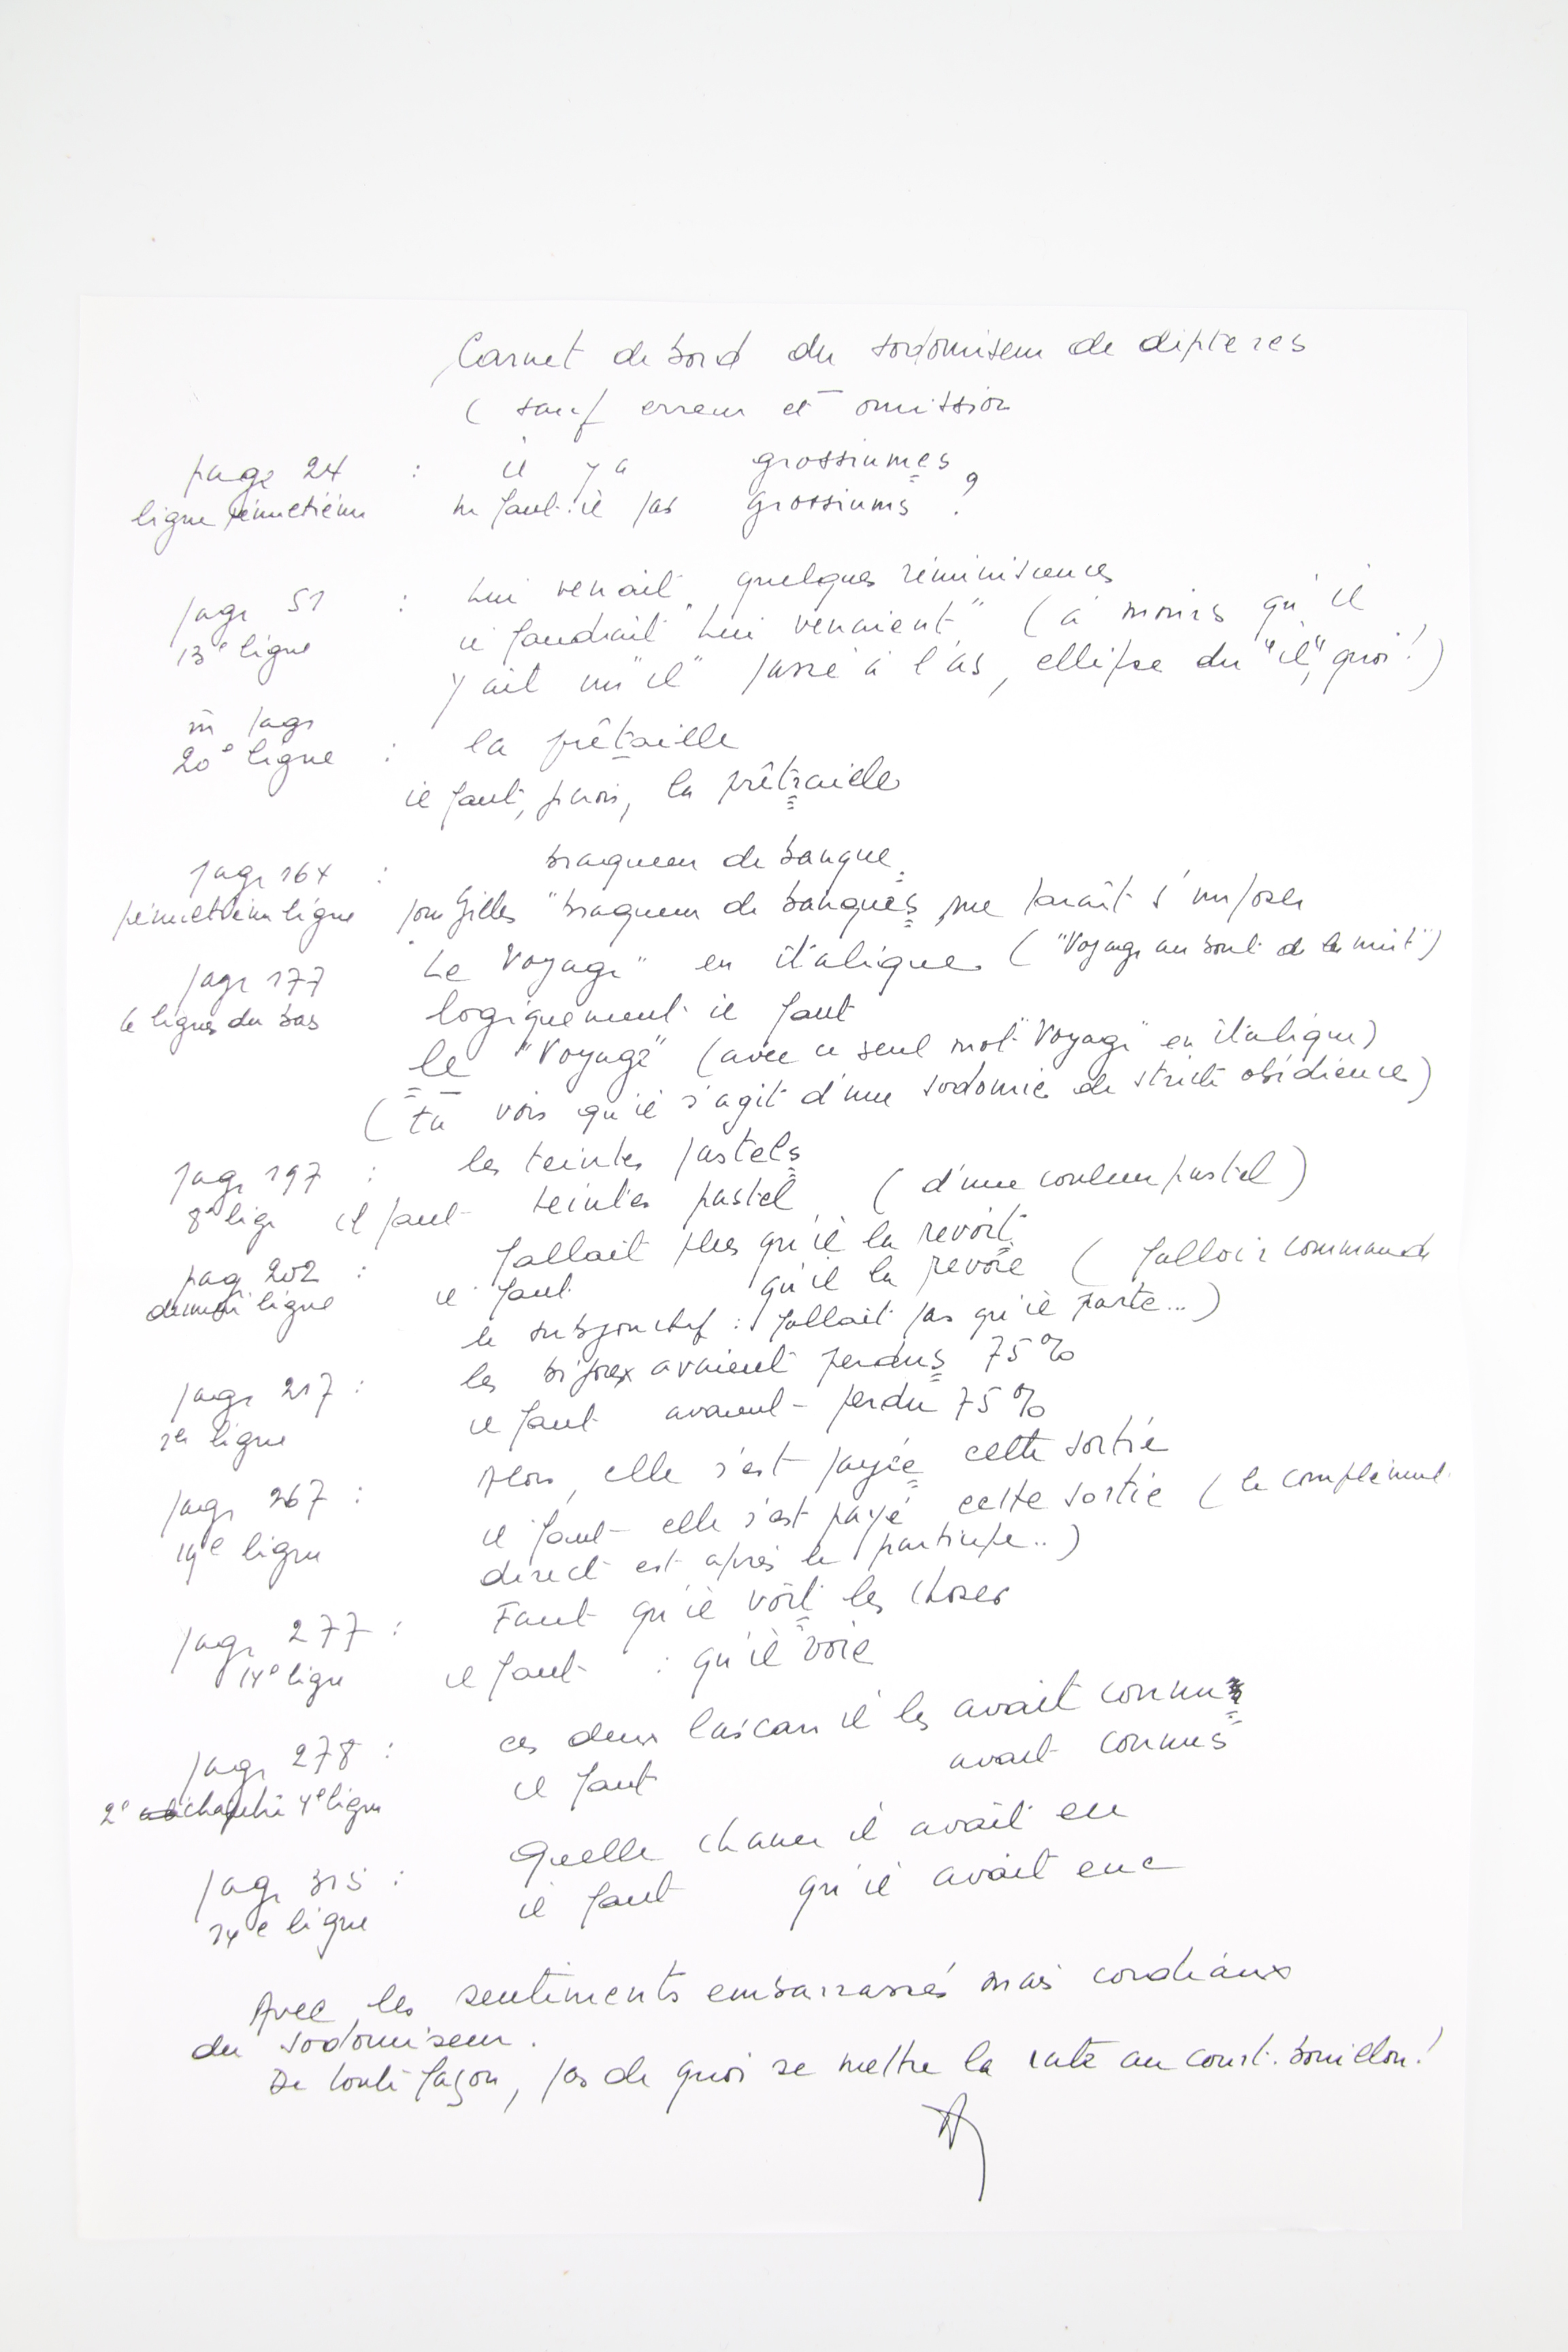 Carnet de bord du sodomiseur de diptères
( sauf erreur et omission
page 24 : il y a grossiumes
ligne pénultième ne faut-il pas grossiums ?
page 51 : Lui venait quelques réminiscences
13e ligne il faudrait "Lui venaient" (à moins qu'il
y ait un "il" passé à l'as, ellipse du "il", quoi !)
m page
20e ligne : la prêtaille
il faut, pense, la prêtraille
page 164 : braqueur de banque
pénultième ligne pour Gilles "braqueur de banques me paraît s'imposer
page 177 "Le Voyage" en italique ("Voyage au bout de la nuit")
6 lignes du bas logiquement il faut
le "Voyage" (avec ce seul mot "Voyage" en italique)
(tu vois qu'il s'agit d'une sodomie de stricte obédience)
page 197 : les teintes pastels
8e lige il faut teintes pastel (d'une couleur pastel)
page 202 : fallait plus qu'il la revoit
dernière ligne il faut qu'il la revoie (falloir commande
le subjonctif : fallait pas qu'il parte...)
page 217 : les bijoux avaient perdus 75 %
1er ligne il faut avaient perdu 75 %
page 267 : Alors, elle s'est payée cette sortie
19e ligne il faut elle s'est payé cette sortie (le complément
direct est après le participe..)
page 277 : Faut qu'il voit les choses
14e ligne il faut : qu'il voie
page 278 : ces deux lascars il les avait connu
2e chapitre 4e ligne il faut avait connus
page 315 : Quelle chance il avait eu
14e ligne il faut qu'il avait eue
Avec les sentiments embarrassés mais cordiaux
du sodomiseur.
De toute façon, pas de quoi se mettre la rate au court-bouillon !